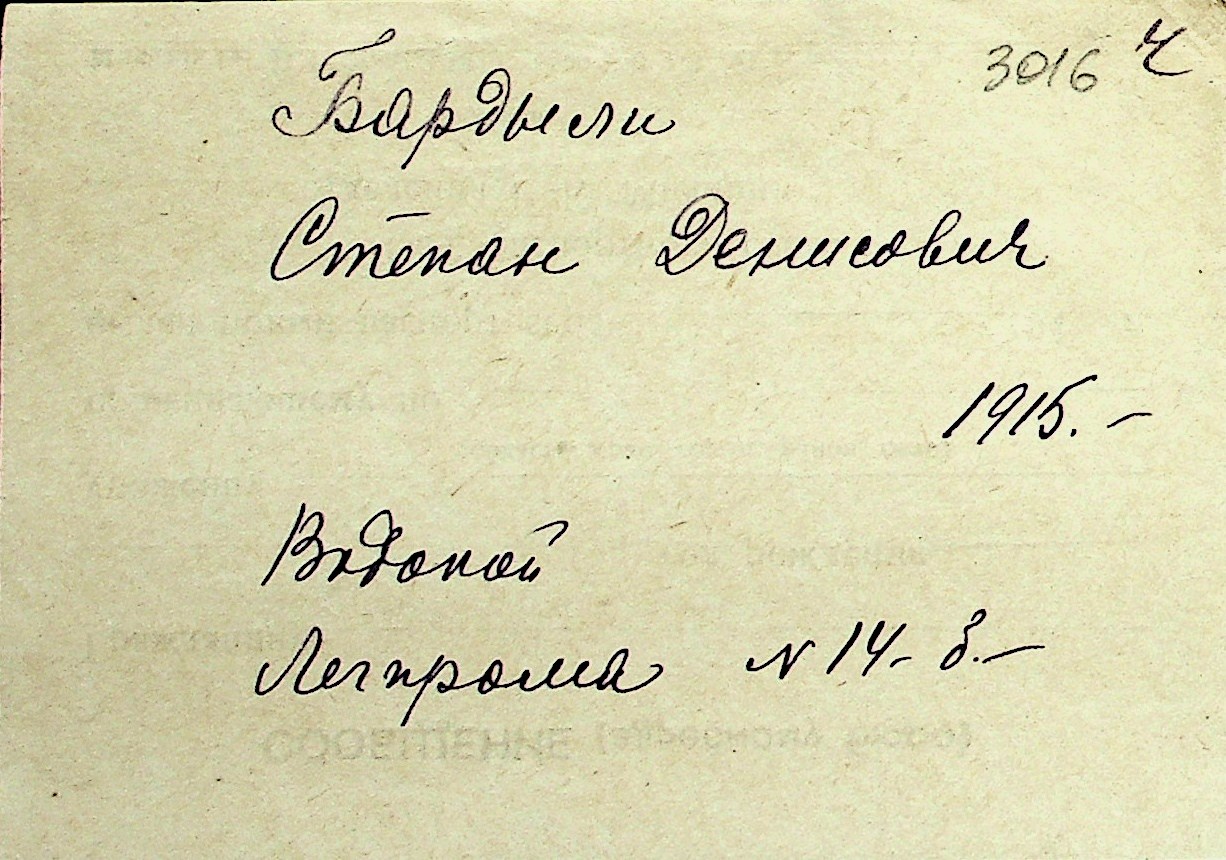 3016 Ч
Бардыли
Степан Денисович
1915. –
Водопой
Легпрома N 14 – 3. –